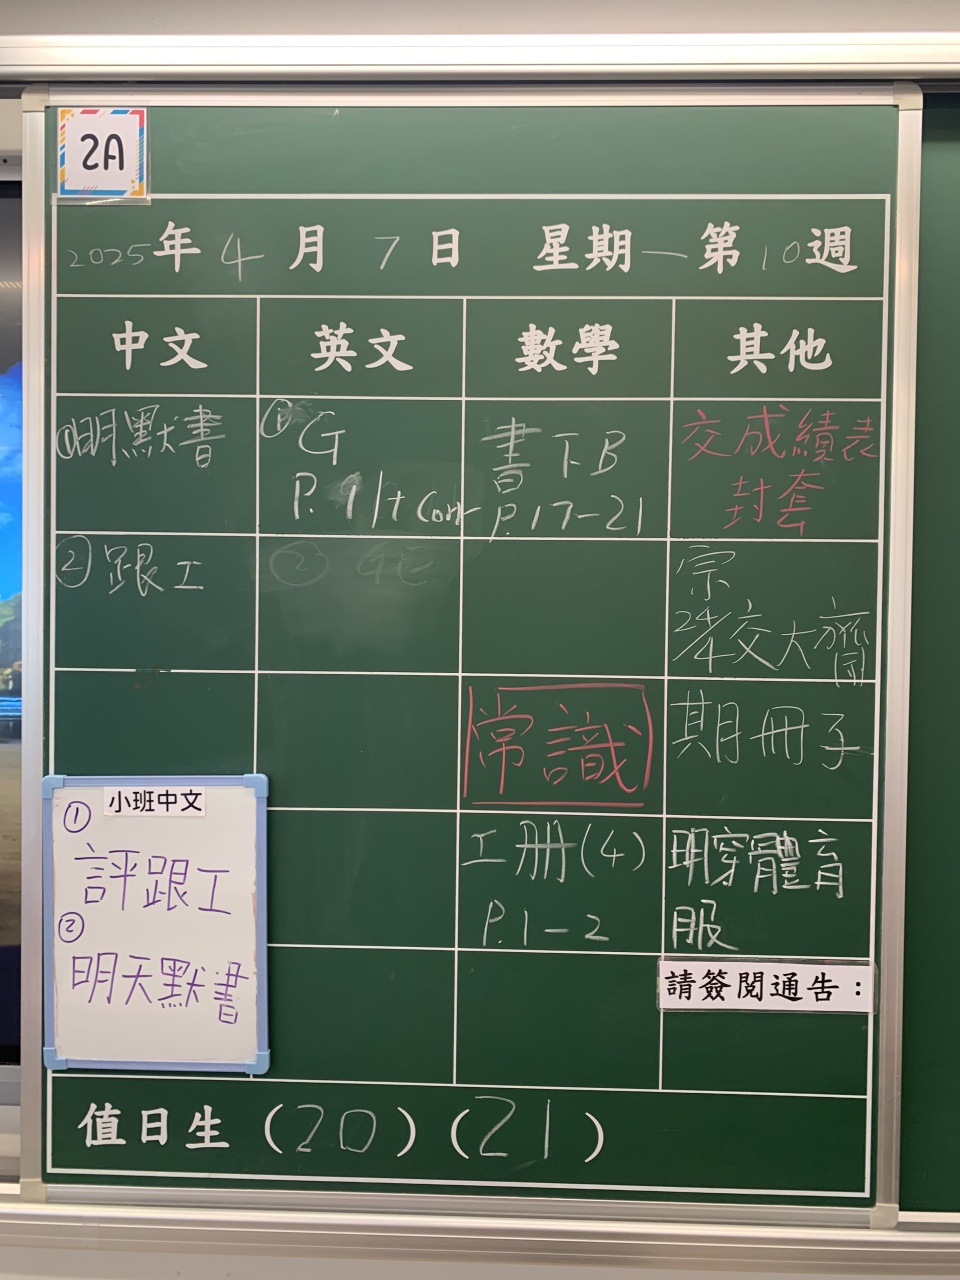 2A
2025年4月7日 星期一第10週
中文 英文 數學 其他
①明默書
②跟工
① G
P. 91+Corr
書下B
P.17-21
常識
工冊(4)
P.1-2
交成績表
封套
宗
24/4交大齋
期冊子
明穿體育
服
請簽閱通告：
小班中文
①
評跟工
②
明天默書
值日生(20)(21)